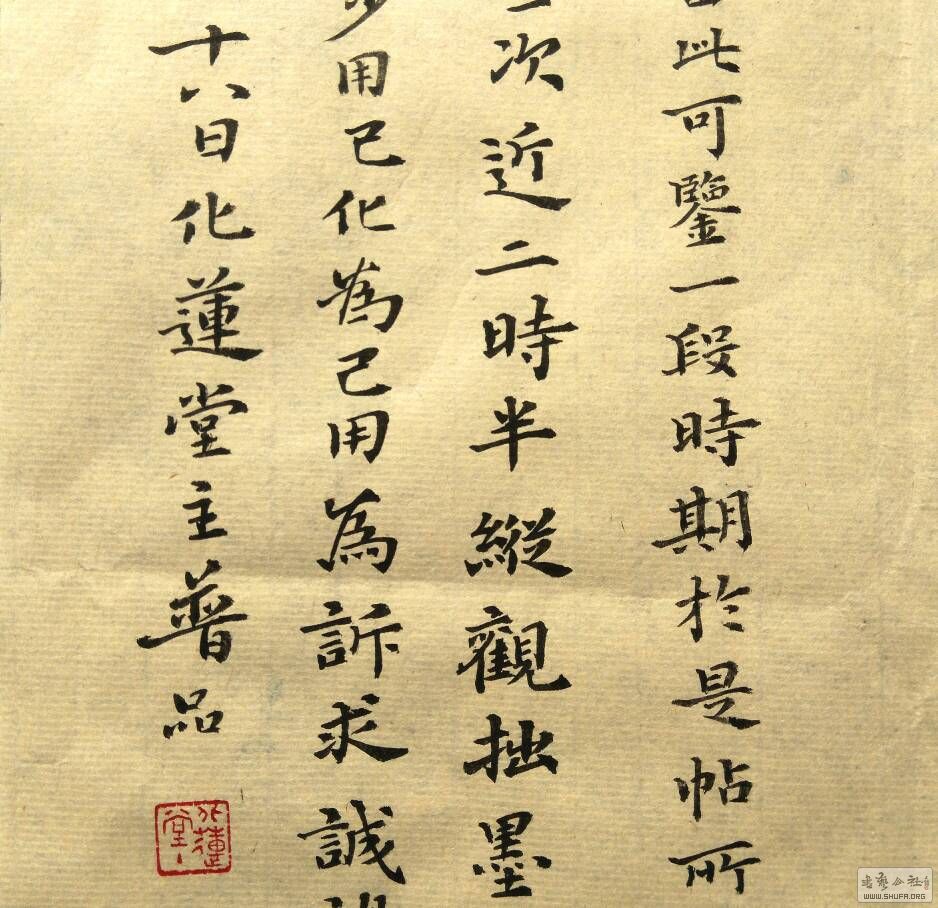 此可鑒一段時期於是帖所
次近二時半縱觀拙墨
用已化為己用為訴求誠
十八日化蓮堂主普品
化蓮堂
書藝公社
WWW.SHUFA.ORG